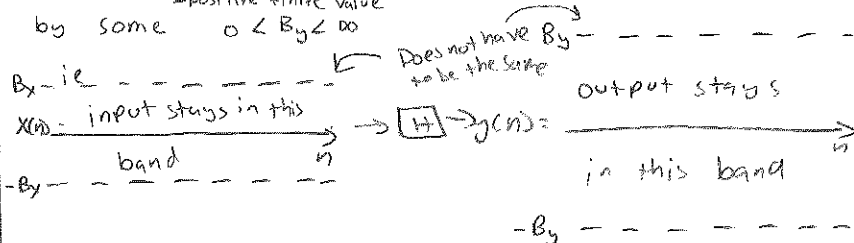 positive finite value
by some 0 < By < ∞
Does not have By
to be the same
Bx - ie
x(n) - input stays in this
band
n
-By
→ H → y(n) =
output stays
n
in this band
-By